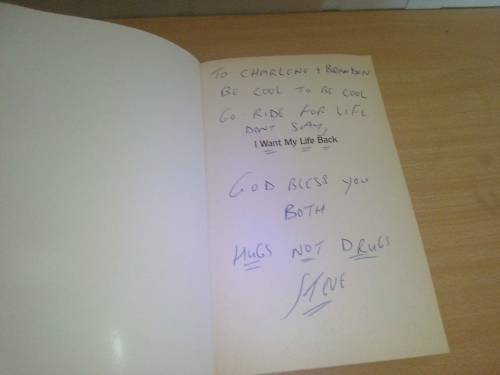 TO CHARLENE + BRANDEN
BE COOL TO BE COOL
GO RIDE FOR LIFE
DONT SAY,
I Want My Life Back
GOD BLESS YOU
BOTH
HUGS NOT DRUGS
STEVE